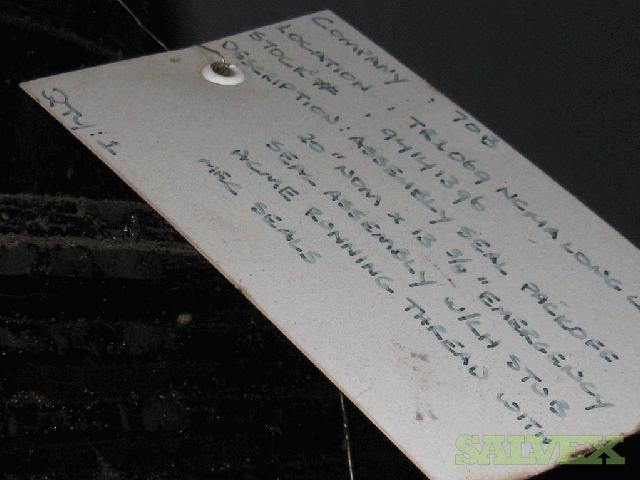 COMPANY : 708
LOCATION : TRL069 NGMALONG
STOCK # : 94141396
DESCRIPTION: ASSEMBLY SEAL PACKOFF
20" NOM X 13 3/8" EMERGENCY
SEAL ASSEMBLY W/LH STUB
ACME RUNNING THREAD WITH
MEC SEALS
QTY: 1
SALVEX